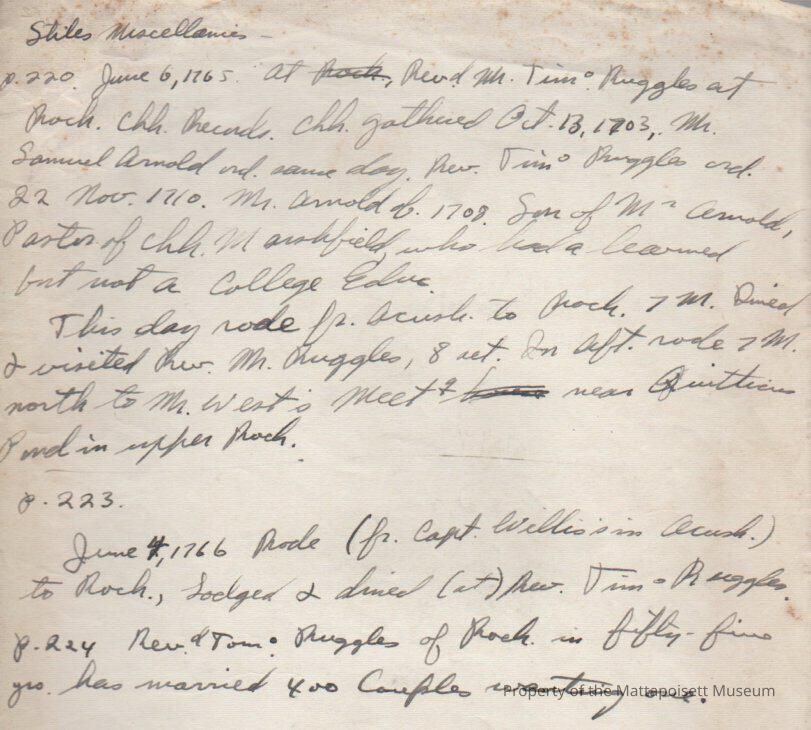 Stiles Miscellanies -
p. 220. June 6, 1765. At Roch., Revd. Mr. Timo. Ruggles at
Roch. Chh. Records. Chh. gathered Oct. 13, 1703, Mr.
Samuel Arnold ord. same day. Rev. Timo Ruggles ord.
22 Nov. 1710. Mr. Arnold d. 1708. Son of Mr Arnold,
Pastor of Chh. Marshfield, who had a learned
but not a College Educ.
This day rode fr. Acush. to Roch. 7 M. Dined
& visited Rev. Mr. Ruggles, 8 aet. In Aft. rode 7 M.
north to Mr. West's Meetg near Quitticus
Pond in upper Roch.
p. 223.
June 4, 1766 Rode (fr. Capt. Willis's in Acush.)
to Roch., Lodged & dined (at) Rev. Timo Ruggles.
p. 224 Rev.d Tomo. Ruggles of Roch. in fifty-five
yrs. has married 400 Couples wanting one.
Property of the Mattapoisett Museum